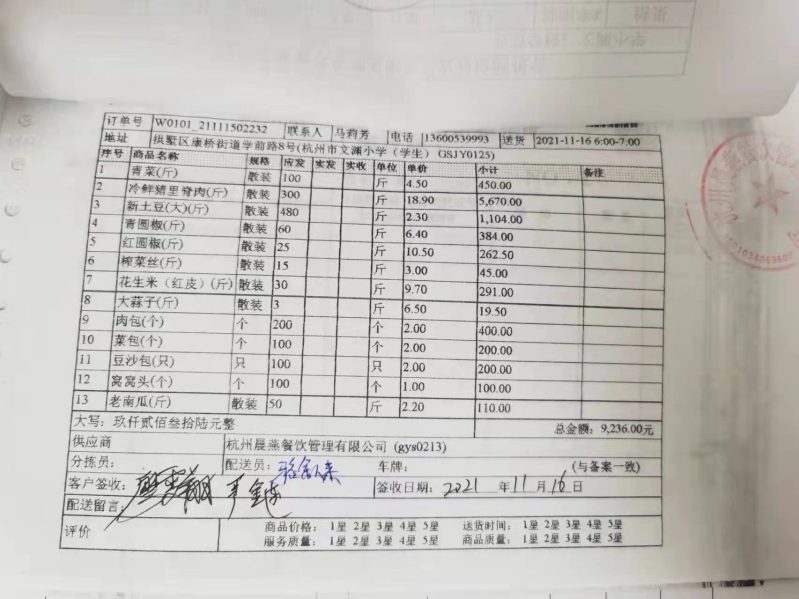 订单号 W0101_21111502232 联系人 马莉芳 电话 13600539993 送货 2021-11-16 6:00-7:00
地址 拱墅区康桥街道学前路8号(杭州市文渊小学（学生）GSJY0125)
序号 商品名称 规格 应发 实发 实收 单位 单价 小计 备注
1 青菜(斤) 散装 100 斤 4.50 450.00
2 冷鲜猪里脊肉(斤) 散装 300 斤 18.90 5,670.00
3 新土豆(大)(斤) 散装 480 斤 2.30 1,104.00
4 青圆椒(斤) 散装 60 斤 6.40 384.00
5 红圆椒(斤) 散装 25 斤 10.50 262.50
6 榨菜丝(斤) 散装 15 斤 3.00 45.00
7 花生米（红皮）(斤) 散装 30 斤 9.70 291.00
8 大蒜子(斤) 散装 3 斤 6.50 19.50
9 肉包(个) 个 200 个 2.00 400.00
10 菜包(个) 个 100 个 2.00 200.00
11 豆沙包(只) 只 100 只 2.00 200.00
12 窝窝头(个) 个 100 个 1.00 100.00
13 老南瓜(斤) 散装 50 斤 2.20 110.00
大写：玖仟贰佰叁拾陆元整 总金额：9,236.00元
供应商 杭州晨燕餐饮管理有限公司 (gys0213)
分拣员： 配送员： 车牌： (与备案一致)
客户签收： 签收日期：2021 年 11 月 16 日
配送留言：
评价 商品价格： 1星 2星 3星 4星 5星 送货时间： 1星 2星 3星 4星 5星
服务质量： 1星 2星 3星 4星 5星 商品质量： 1星 2星 3星 4星 5星